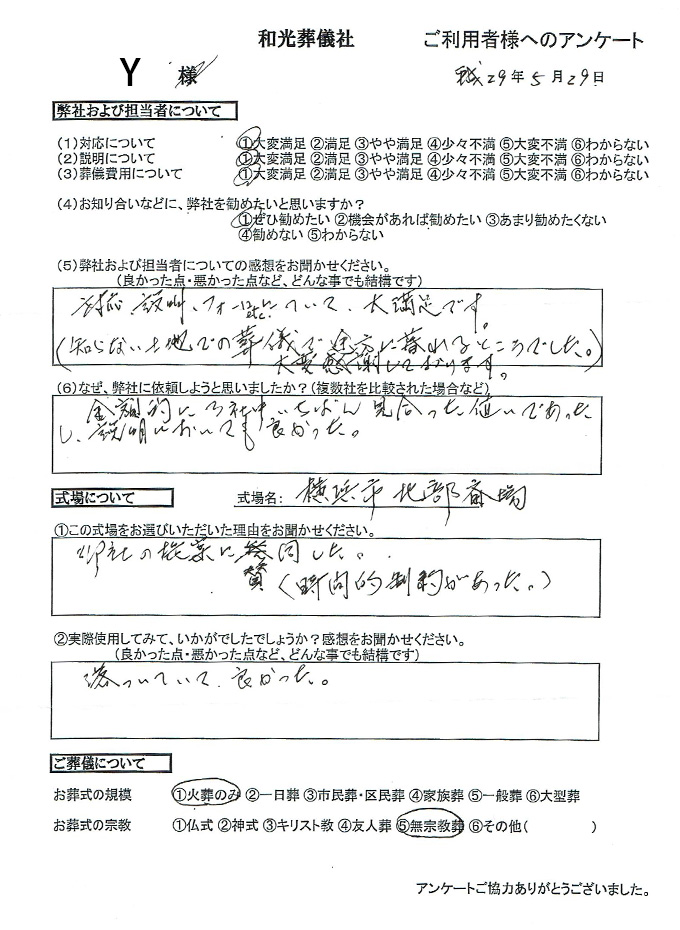 和光葬儀社 ご利用者様へのアンケート
Y 様 平成29年5月29日
弊社および担当者について
(1)対応について ①大変満足 ②満足 ③やや満足 ④少々不満 ⑤大変不満 ⑥わからない
(2)説明について ①大変満足 ②満足 ③やや満足 ④少々不満 ⑤大変不満 ⑥わからない
(3)葬儀費用について ①大変満足 ②満足 ③やや満足 ④少々不満 ⑤大変不満 ⑥わからない
(4)お知り合いなどに、弊社を勧めたいと思いますか？
①ぜひ勧めたい ②機会があれば勧めたい ③あまり勧めたくない
④勧めない ⑤わからない
(5)弊社および担当者についての感想をお聞かせください。
(良かった点・悪かった点など、どんな事でも結構です)
対応、説明、フォローetc.について、大満足です。
(知らない土地での葬儀で途方に暮れるところでした。)
大変感謝しております。
(6)なぜ、弊社に依頼しようと思いましたか？(複数社を比較された場合など)
金額的に3社中いちばん見合った値いであった
し、説明においても良かった。
式場について 式場名： 横浜市北部斎場
①この式場をお選びいただいた理由をお聞かせください。
御社の提案に賛同した。
(時間的制約があった。)
②実際使用してみて、いかがでしたでしょうか？感想をお聞かせください。
(良かった点・悪かった点など、どんな事でも結構です)
落ついていて、良かった。
ご葬儀について
お葬式の規模 ①火葬のみ ②一日葬 ③市民葬・区民葬 ④家族葬 ⑤一般葬 ⑥大型葬
お葬式の宗教 ①仏式 ②神式 ③キリスト教 ④友人葬 ⑤無宗教葬 ⑥その他( )
アンケートご協力ありがとうございました。